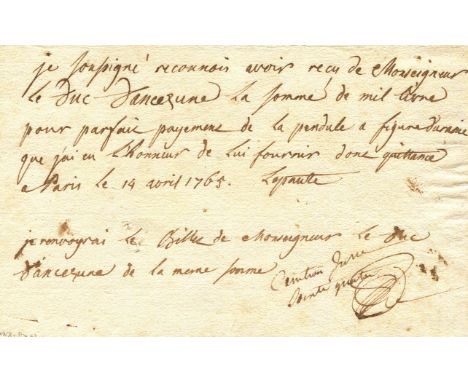 je soussigné reconnois avoir reçu de Monseigneur
le Duc Dancezune la somme de mil livre
pour parfait payement de la pendule a figure
que j'ai eu l'honneur de lui fournir dont quittance
a Paris le 14 avril 1765. Lepaute
je renvoyrai le Billet de Monseigneur le Duc
Dancezune de la meme somme